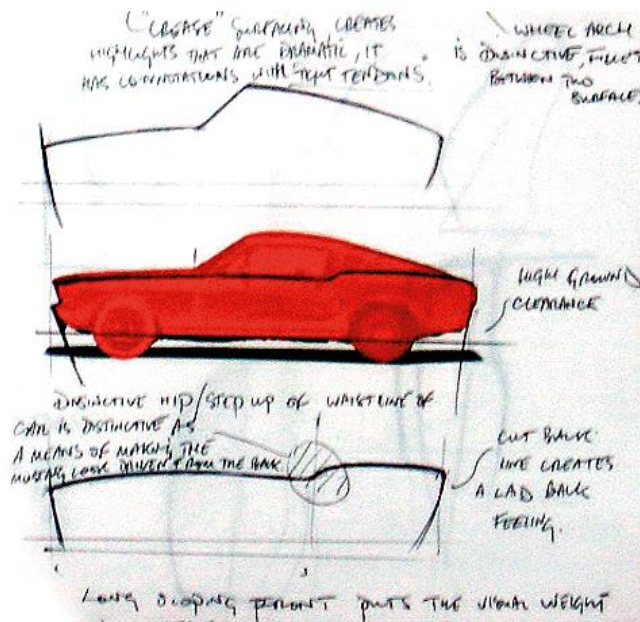 ("CREASE" SURFACING, CREATES
HIGHLIGHTS THAT ARE DRAMATIC, IT
HAS CONNOTATIONS WITH "TIGHT TENDONS."
WHEEL ARCH
IS DISTINCTIVE, FILLET
BETWEEN TWO
SURFACE
HIGH GROUND
CLEARANCE
DISTINCTIVE HIP/STEP UP OF WAISTLINE OF
CAR IS DISTINCTIVE AS
A MEANS OF MAKING THE
LOOK DRIVEN FROM THE BACK
CUT BACK
LINE CREATES
A LAID BACK
FEELING.
LONG SLOPING FRONT PUTS THE VISUAL WEIGHT